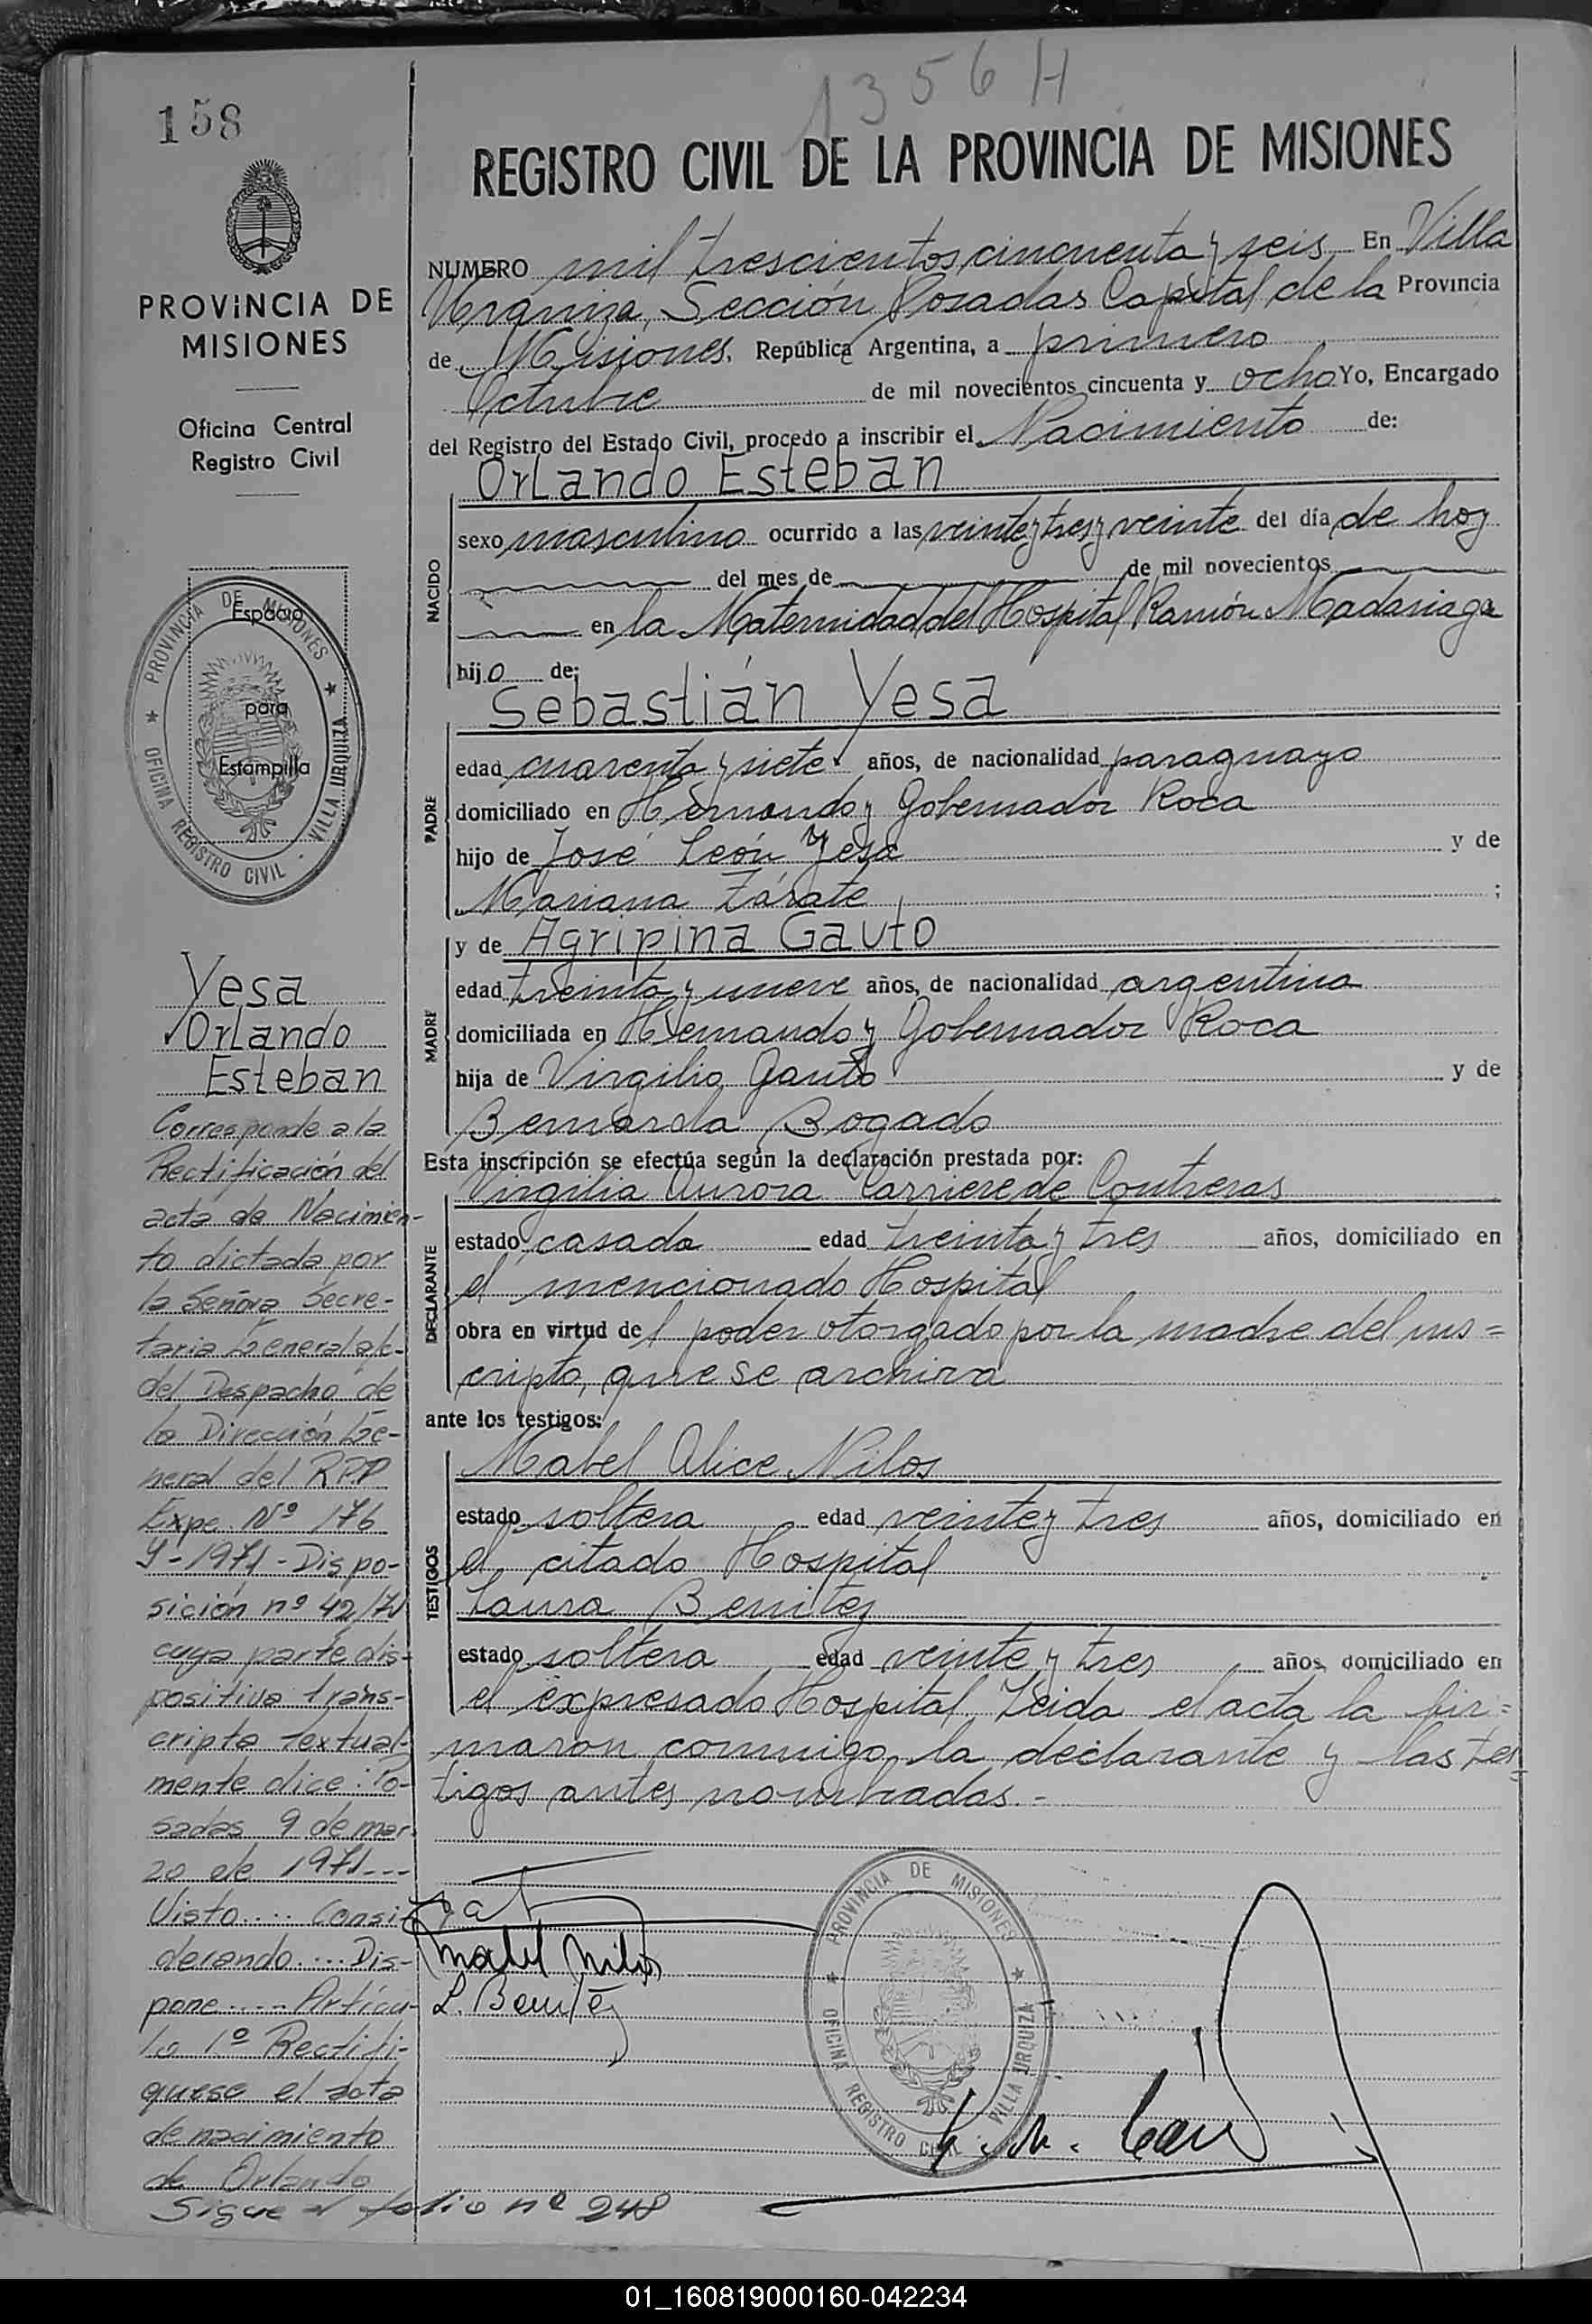 1356 H
158
REGISTRO CIVIL DE LA PROVINCIA DE MISIONES
PROVINCIA DE
MISIONES
Oficina Central
Registro Civil
NUMERO mil trescientos cincuenta y seis En Villa
Urquiza, Sección Posadas Capital de la Provincia
de Misiones, República Argentina, a primero
Octubre de mil novecientos cincuenta y ocho Yo, Encargado
del Registro del Estado Civil, procedo a inscribir el Nacimiento de:
NACIDO
Orlando Esteban
sexo masculino ocurrido a las veinte y tres y veinte del día de hoy
del mes de de mil novecientos
en la Maternidad del Hospital Ramón Madariaga
hijo de:
PADRE
Sebastián Yesa
edad cuarenta y siete años, de nacionalidad paraguayo
domiciliado en Hernando y Gobernador Roca
hijo de José León Yesa y de
Mariana Zárate ;
MADRE
y de Agripina Gauto
edad treinta y nueve años, de nacionalidad argentina
domiciliada en Hernando y Gobernador Roca
hija de Virgilio Gauto y de
Bernarda Bogado
Esta inscripción se efectúa según la declaración prestada por:
DECLARANTE
Virgilia Aurora Carriere de Contreras
estado casada edad treinta y tres años, domiciliado en
el mencionado Hospital
obra en virtud del poder otorgado por la madre del ins=
cripto, que se archiva
ante los testigos:
TESTIGOS
Mabel Alice Nilos
estado soltera edad veinte y tres años, domiciliado en
el citado Hospital
Laura Benitez
estado soltera edad veinte y tres años, domiciliado en
el expresado Hospital. Leida el acta la fir=
maron conmigo, la declarante y las tes
tigos antes nombradas.-
Mabel Nilos
L. Benítez
PROVINCIA DE MISIONES
OFICINA REGISTRO CIVIL VILLA URQUIZA
Espacio
para
Estampilla
PROVINCIA DE MISIONES
OFICINA REGISTRO CIVIL - VILLA URQUIZA
Yesa
Orlando
Esteban
Corresponde a la
Rectificación del
acta de Nacimien-
to dictada por
la Señora Secre-
taria General a/c.
del Despacho de
la Dirección Ge-
neral del R.P.P
Expe. Nº 176
Y-1971-Dispo-
sición nº 42/71
cuya parte dis-
positiva trans-
cripta textual-
mente dice: Po-
sadas 9 de mar-
zo de 1971---
Visto.... Consi-
derando.... Dis-
pone.... Artícu-
lo 1º Rectifi-
quese el acta
de nacimiento
de Orlando
Sigue al folio nº 248
01_160819000160-042234